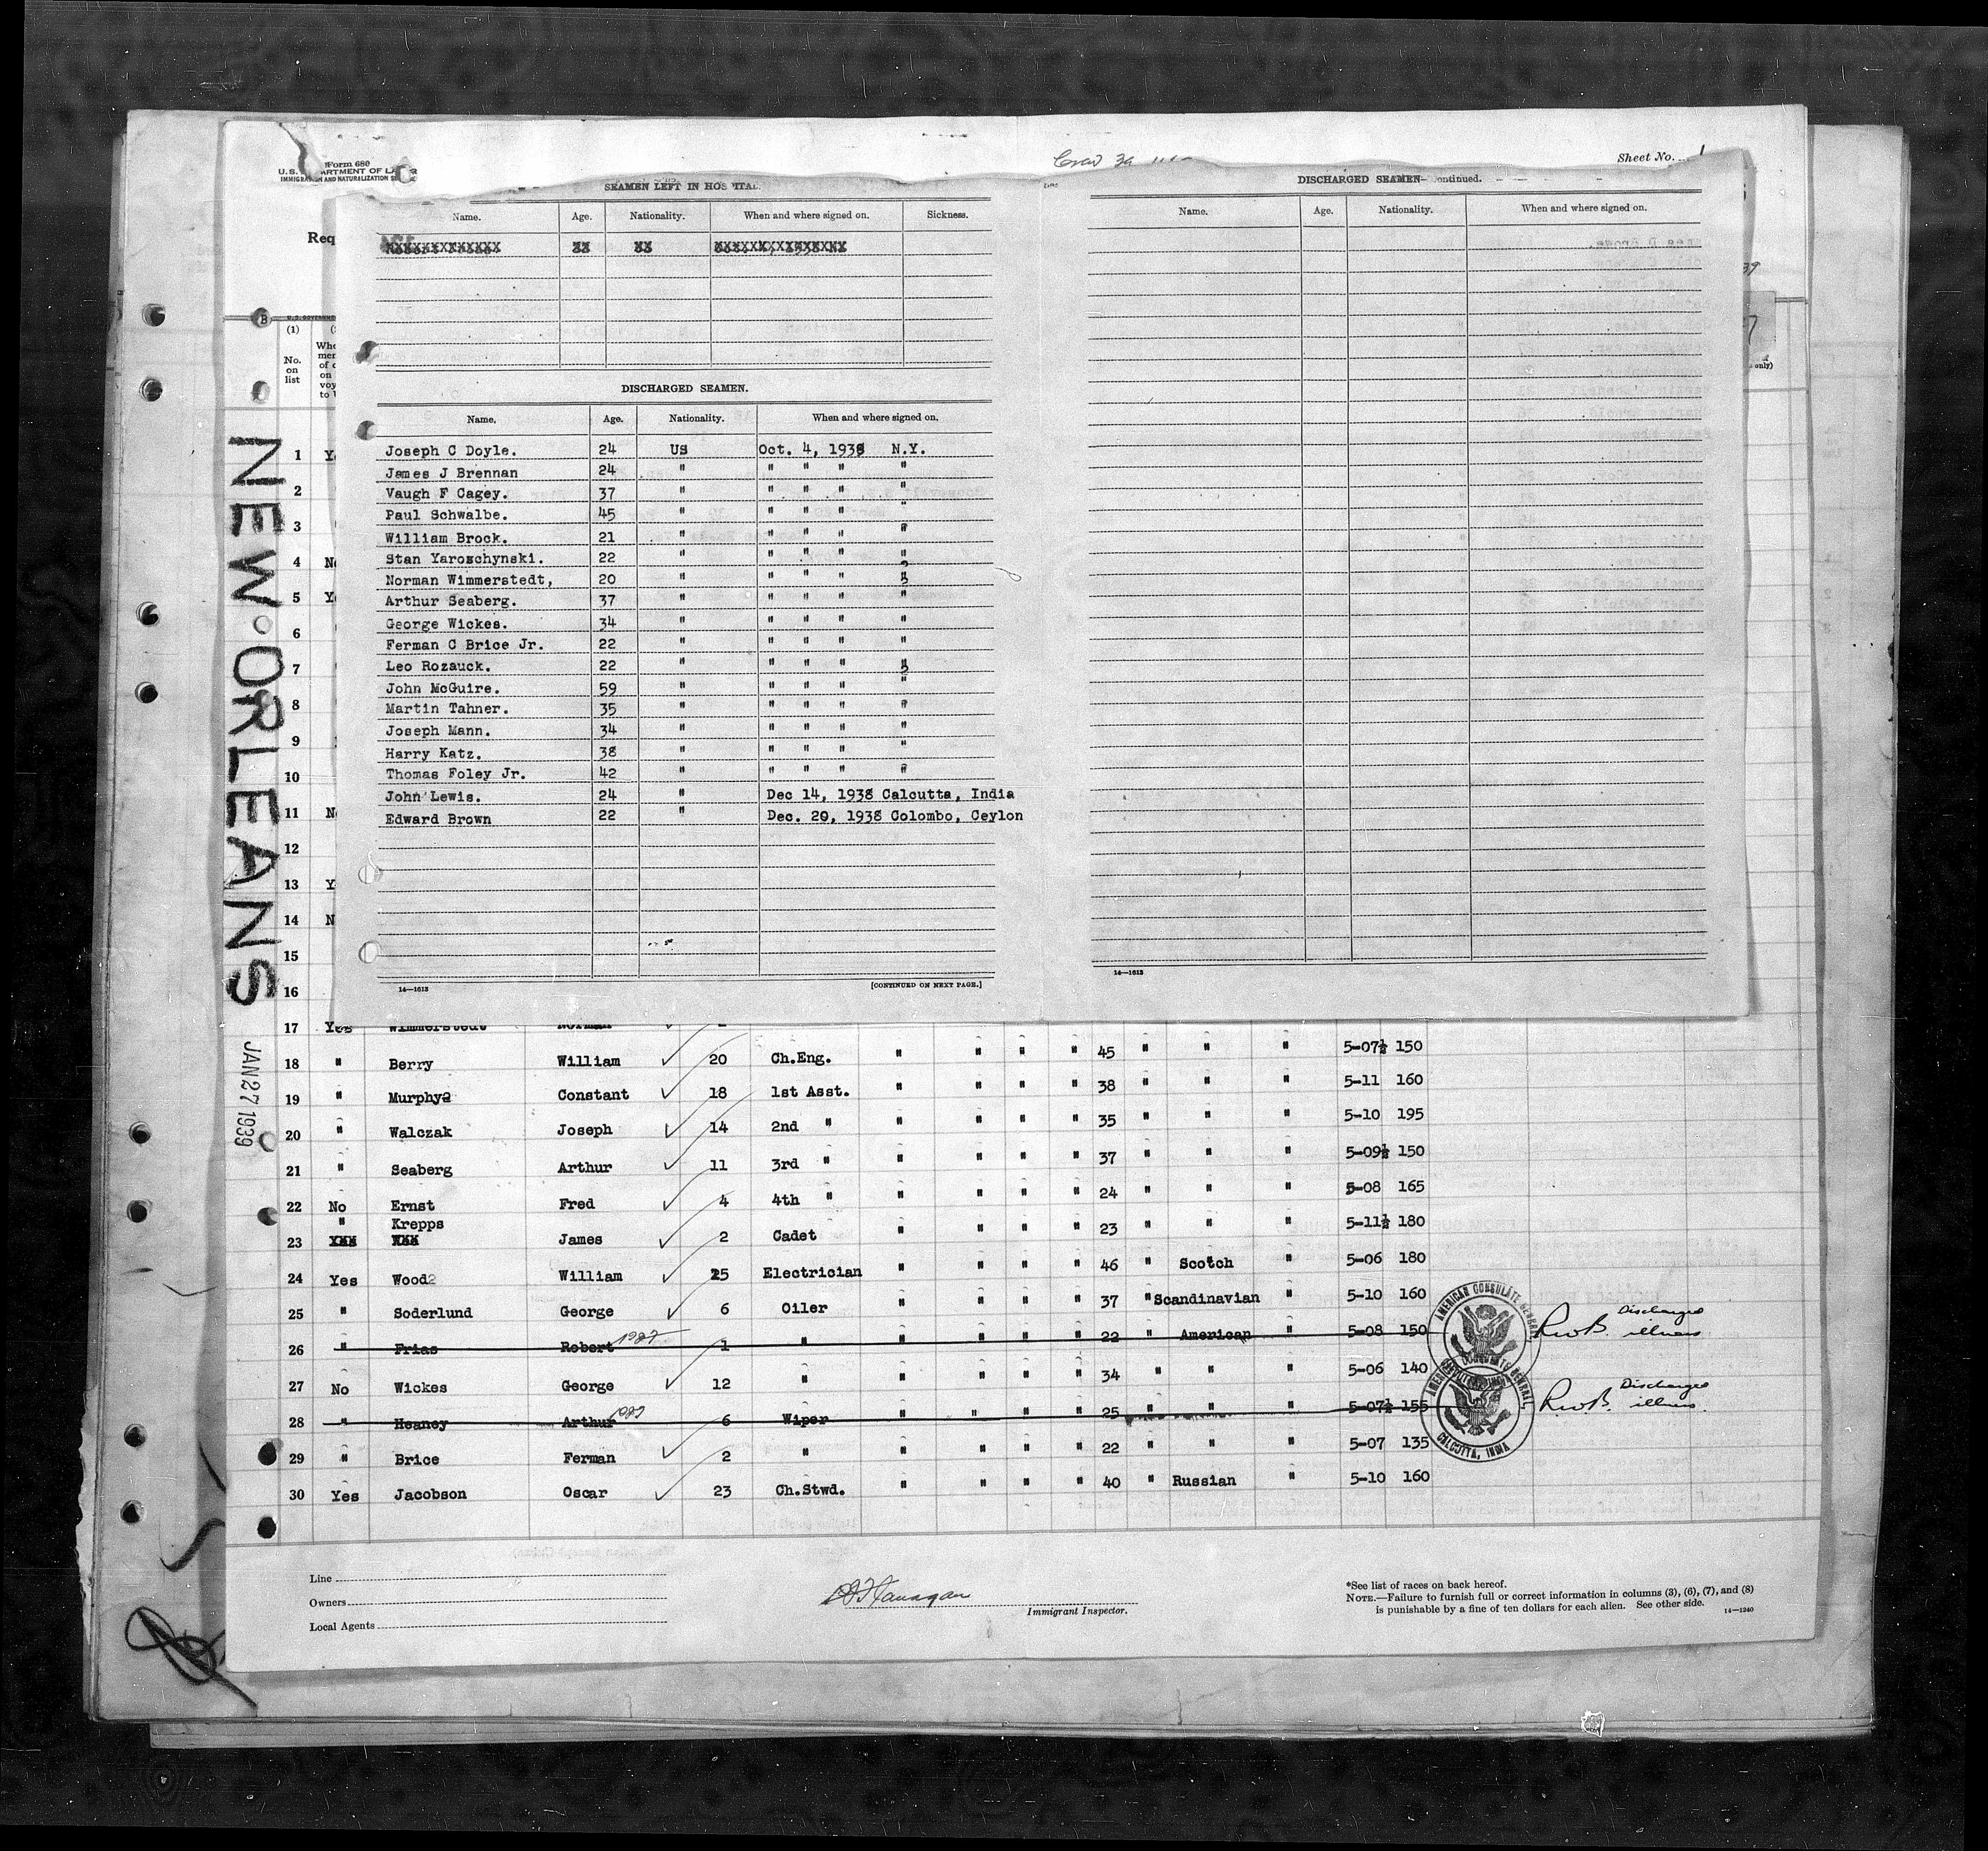 Form 680
IMMIGRATION AND NATURALIZATION
Sheet No. 1
Req
SEAMEN LEFT IN HOSPITAL.
Name. Age. Nationality. When and where signed on. Sickness.
DISCHARGED SEAMEN.
Name. Age. Nationality. When and where signed on.
Joseph C Doyle. 24 US Oct. 4, 1938 N.Y.
James J Brennan 24 " " " " "
Vaugh F Cagey. 37 " " " " "
Paul Schwalbe. 45 " " " " "
William Brock. 21 " " " " "
Stan Yaroschynski. 22 " " " " "
Norman Wimmerstedt, 20 " " " " "
Arthur Seaberg. 37 " " " " "
George Wickes. 34 " " " " "
Ferman C Brice Jr. 22 " " " " "
Leo Rozauck. 22 " " " " "
John McGuire. 59 " " " " "
Martin Tahner. 35 " " " " "
Joseph Mann. 34 " " " " "
Harry Katz. 38 " " " " "
Thomas Foley Jr. 42 " " " " "
John Lewis. 24 " Dec 14, 1938 Calcutta, India
Edward Brown 22 " Dec. 20, 1938 Colombo, Ceylon
14—1613 [CONTINUED ON NEXT PAGE.]
DISCHARGED SEAMEN—Continued.
Name. Age. Nationality. When and where signed on.
14—1613
(1)
No.
on
list
only)
NEW ORLEANS
JAN 27 1939
1
2
3
4
5
6
7
8
9
10
11
12
13
14
15
16
17 Yes Wimmerstedt Norman
18 " Berry William 20 Ch.Eng. " " " " 45 " " " 5-07½ 150
19 " Murphy Constant 18 1st Asst. " " " " 38 " " " 5-11 160
20 " Walczak Joseph 14 2nd " " " " " 35 " " " 5-10 195
21 " Seaberg Arthur 11 3rd " " " " " 37 " " " 5-09½ 150
22 No Ernst Fred 4 4th " " " " " 24 " " " 5-08 165
23 " Krepps James 2 Cadet " " " " 23 " " " 5-11½ 180
24 Yes Wood William 25 Electrician " " " " 46 " Scotch " 5-06 180
25 " Soderlund George 6 Oiler " " " " 37 " Scandinavian " 5-10 160
26 " Frias Robert 1 " " " " " 22 " American " 5-08 150 RwB. Discharged illness
27 No Wickes George 12 " " " " " 34 " " " 5-06 140
28 " Heaney Arthur 6 Wiper " " " " 25 " " " 5-07½ 155 RwB. Discharged illness.
29 " Brice Ferman 2 " " " " " 22 " " " 5-07 135
30 Yes Jacobson Oscar 23 Ch.Stwd. " " " " 40 " Russian " 5-10 160
AMERICAN CONSULATE GENERAL
CALCUTTA, INDIA
Line
Owners
Local Agents
Immigrant Inspector.
*See list of races on back hereof.
NOTE.—Failure to furnish full or correct information in columns (3), (6), (7), and (8)
is punishable by a fine of ten dollars for each alien. See other side.
14—1240